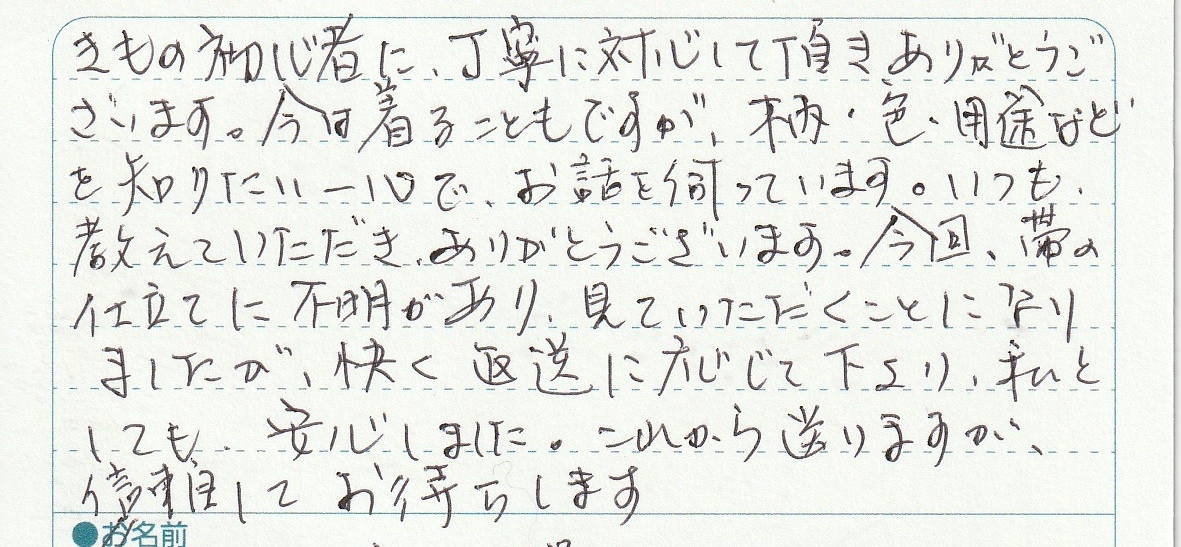 きもの初心者に、丁寧に対応して頂き、ありがとうご
ざいます。今は着ることもですが、柄・色・用途など
を知りたい一心で、お話を伺っています。いつも、
教えていただき、ありがとうございます。今回、帯の
仕立てに不明があり、見ていただくことになり
ましたが、快く返送に応じて下さり、私と
しても、安心しました。これから送りますが、
信頼してお待ちします
●お名前